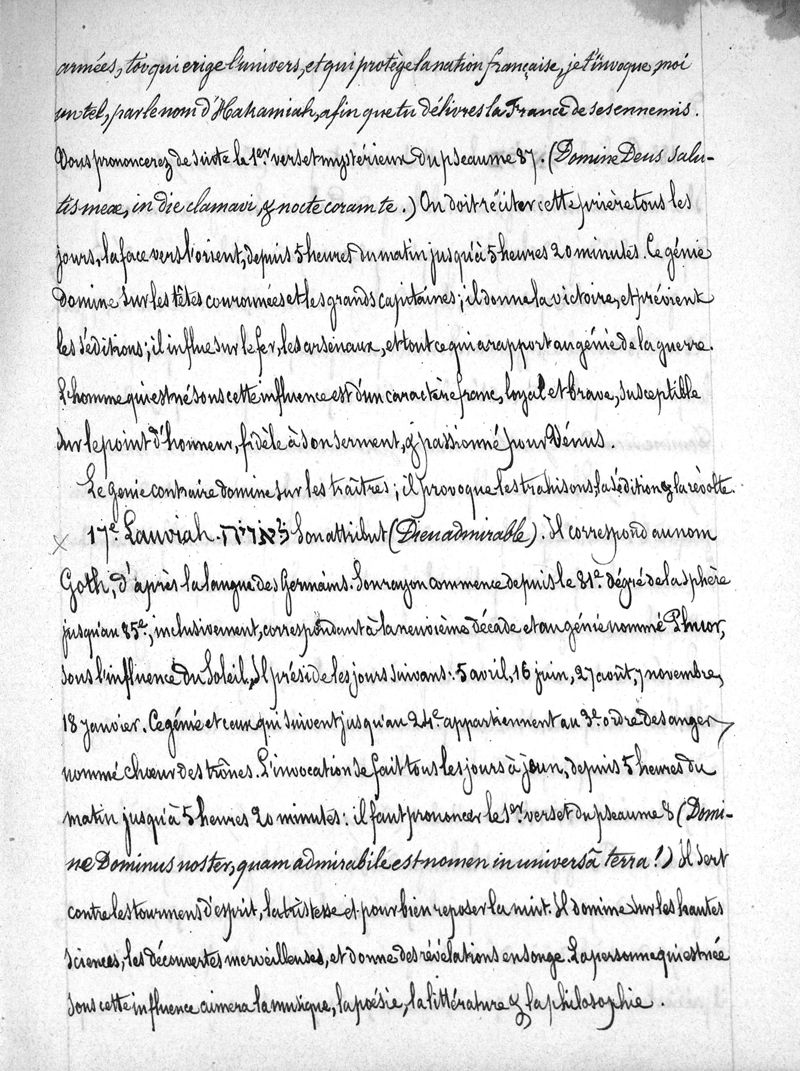 armées, toi qui erige l'univers, et qui protège la nation française, je t'invoque, moi
un tel, par le nom d'Hakamiah, afin que tu délivres la France de ses ennemis.
Vous prononcerez de suite le 1er verset mystérieux du pseaume 87. (Domine Deus salu-
tis meæ, in die clamavi, & nocte coram te.) On doit réciter cette prière tous les
jours, la face vers l'orient, depuis 5 heures du matin jusqu'à 5 heures 20 minutes. Ce génie
domine sur les têtes couronnées et les grands capitaines; il donne la victoire, et prévient
les séditions; il influe sur le fer, les arsénaux, et tout ce qui a rapport au génie de la guerre.
L'homme qui est né sous cette influence est d'un caractère franc, loyal et brave, susceptible
sur le point d'honneur, fidèle à son serment, & passionné pour Vénus.
Le génie contraire domine sur les traîtres; il provoque les trahisons, la sédition & la révolte.
× 17e. Lauviah. לאויה Son attribut (Dieu admirable). Il correspond au nom
Goth, d'après la langue des Germains. Son rayon commence depuis le 81e. dégré de la sphère
jusqu'au 85e., inclusivement, correspondant à la neuvième décade et au génie nommé Phuor,
sous l'influence du Soleil. Il préside les jours suivans: 5 avril, 16 juin, 27 août, 7 novembre,
18 janvier. Ce génie et ceux qui suivent jusqu'au 24e. appartiennent au 3e. ordre des anges,
nommé chœur des trônes. L'invocation se fait tous les jours à jeun, depuis 5 heures du
matin jusqu'à 5 heures 20 minutes: il faut prononcer le 1er. verset du pseaume 8 (Domi-
ne Dominus noster, quam admirabile est nomen in universâ terra!) Il sert
contre les tourmens d'esprit, la tristesse et pour bien reposer la nuit. Il domine sur les hautes
sciences, les découvertes merveilleuses, et donne des révélations en songe. La personne qui est née
sous cette influence aimera la musique, la poésie, la littérature & la philosophie.